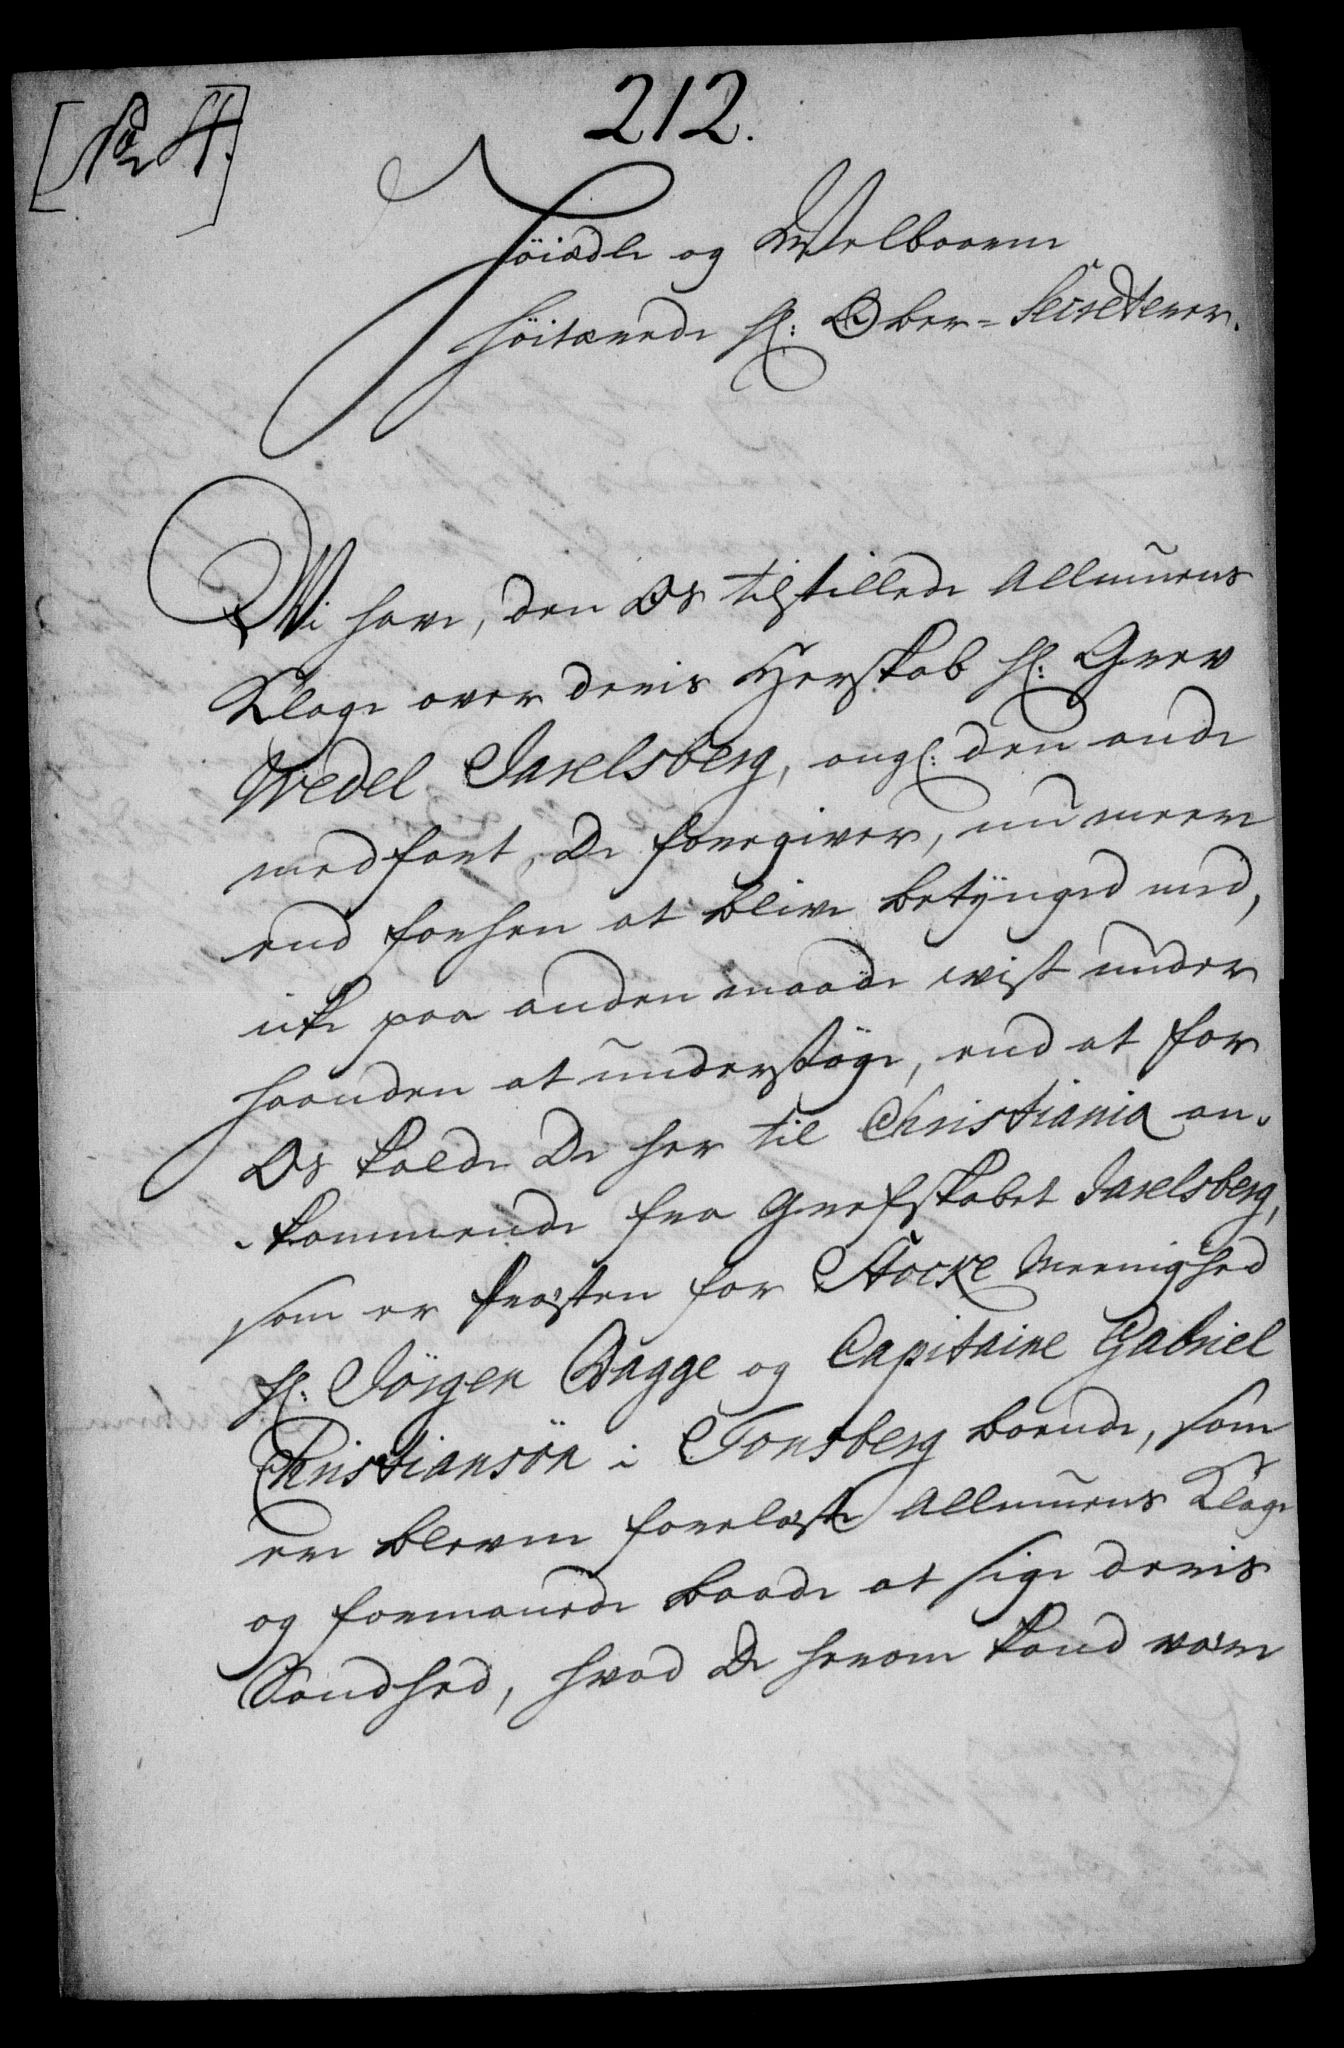 212.
[No 4.]
Höiædle og Welbaarne
Höitærede Hr: Ober-Secreterer.
Wi have, den Os tilstillede Allmuens
Klage over deris Herskab Hr: Grev
Wedel Jarelsberg, ang: den onde
medfart, De foregiver, nu meere
end forhen at blive betÿnged med,
icke paa anden maade vist under
haanden at undersöge, end at for
Os kalde De her til Christiania an-
kommende fra Grefskabet Jarelsberg,
som er Præsten for Stocke Meenighed
Hr: Jörgen Bagge og Capitaine Gabriel
Christiansön i Tonsberg boende, som
ere blevne forelæste Allmuens Klage
og formanede baade at sige deris
Sandhed, hvad De herom kand være